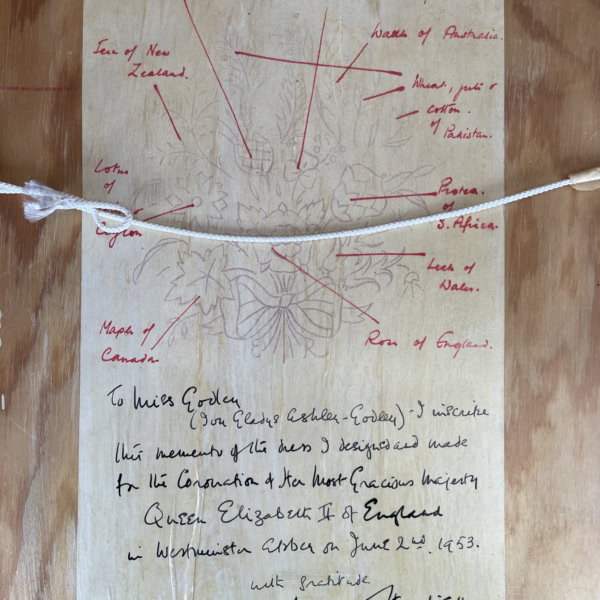 Wattle of Australia.
Fern of New
Zealand.
Wheat, jute &
cotton
of
Pakistan.
Lotus
of
Ceylon
Protea
of
S. Africa.
Leek of
Wales.
Maple of
Canada
Rose of England.
To Miss Godley
Gladys Ashley-Godley) - I inscribe
this memento of the dress I designed and made
for the Coronation of Her Most Gracious Majesty
Queen Elizabeth II of England
in Westminster Abbey on June 2nd. 1953.
with gratitude